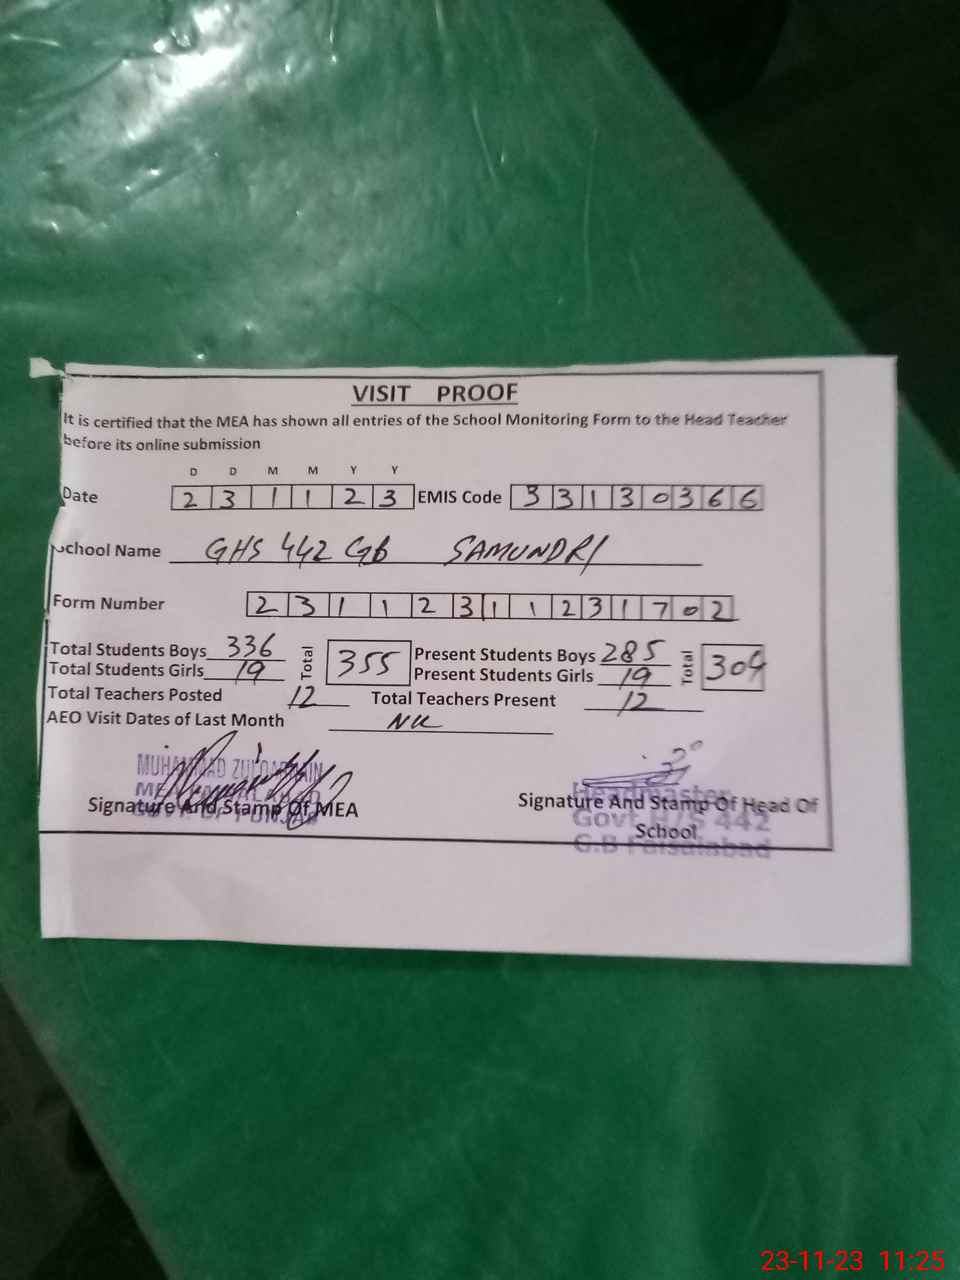 VISIT PROOF
It is certified that the MEA has shown all entries of the School Monitoring Form to the Head Teacher
before its online submission
D D M M Y Y
Date 2 3 1 1 2 3 EMIS Code 3 3 1 3 0 3 6 6
School Name GHS 442 GB SAMUNDRI
Form Number 2 3 1 1 2 3 1 1 2 3 1 7 0 2
Total Students Boys 336 Total 355 Present Students Boys 285 Total 304
Total Students Girls 19 Present Students Girls 19
Total Teachers Posted 12 Total Teachers Present 12
AEO Visit Dates of Last Month
MUHAMMAD ZULQARNAIN
MEA
Signature And Stamp Of MEA
GOVT. OF PUNJAB
Headmaster
Signature And Stamp Of Head Of
Govt H/S 442
School
G.B Faisalabad
23-11-23 11:25